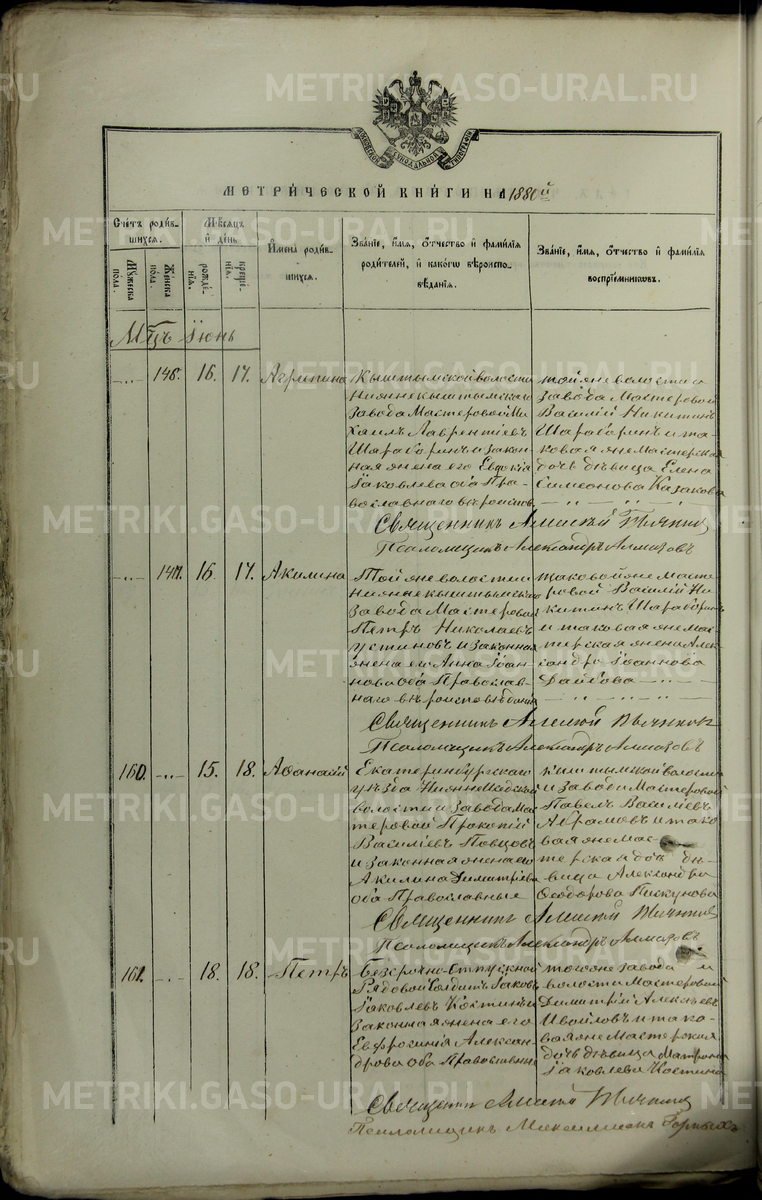 METRIKI.GASO-URAL.RU
МОСКОВСКОЙ СѴНОДАЛЬНОЙ ТИПОГРАФІИ
МЕТРИ́ЧЕСКОЙ КНИ́ГИ НА 1880й
Сче́тъ роди́в-
шихся.
Мꙋ́жеска по́ла.
Же́нска по́ла.
Мѣ́сяцъ
и҆ де́нь.
рожде́-
нїя.
креще́-
нїя.
И҆мена̀ роди́в-
шихся.
Зва́нїе, и҆́мя, ѻ҆́тчество и҆ фами́лїя
роди́телей, и҆ како́гѡ вѣроиспо-
вѣ́данїя.
Зва́нїе, и҆́мя, ѻ҆́тчество и҆ фами́лїя
воспрїе́мникѡвъ.
Мцъ Іюнь
146. 16. 17. Агрипина
Кыштымской волости
Нижнекыштымскаго
завода Мастеровой Ми
хаилъ Лаврентіевъ
Шараборинъ и закон
ная жена его Евдокія
Іаковлева оба Пра-
вославнаго вѣроиспов.
тойже волости и
завода Мастеровой
Василій Никитинъ
Шараборинъ и та-
коваяже Мастерская
дочь дѣвица Елена
Симеонова Казакова
Священникъ Алексѣй
Псаломщикъ Александръ Алмазовъ
147. 16. 17. Акилина
Тойже волости и
Нижнекыштымскаго
завода Мастеровой
Петръ Николаевъ
Устиновъ и законная
жена его Анна Іоан
нова оба Православ-
наго вѣроисповѣданія
таковойже Масте-
ровой Василій Ни
китинъ Шараборинъ
и таковаяже мас
терская жена Алек
сандра Іоаннова
Священникъ Алексѣй
Псаломщикъ Александръ Алмазовъ
160. 15. 18. Аѳанасій
Екатеринбургскаго
уѣзда Нижне
волости и завода Мас
теровой Прокопій
Василіевъ
и законная жена его
Акилина Димитріева
оба Православные
Кыштымской волости
и завода Мастеровой
Павелъ Василіевъ
Абрамовъ и тако
ваяже мас-
терская дочь дѣ-
вица Александра
Ѳеодорова Пискунова
Священникъ Алексѣй
Псаломщикъ Александръ Алмазовъ
161. 18. 18. Петръ
Безсрочно-отпускной
Рядовой Солдатъ Іаковъ
Іаковлевъ Костинъ и
законная жена его
Евфросинія Алексан-
дрова оба Православные
тогоже завода и
волости Мастеровой
Димитрій Алексѣевъ
Ивойловъ и тако-
ваяже Мастерская
дочь дѣвица Матрона
Іаковлева Костина
Священникъ Алексѣй
Псаломщикъ Максимиліанъ